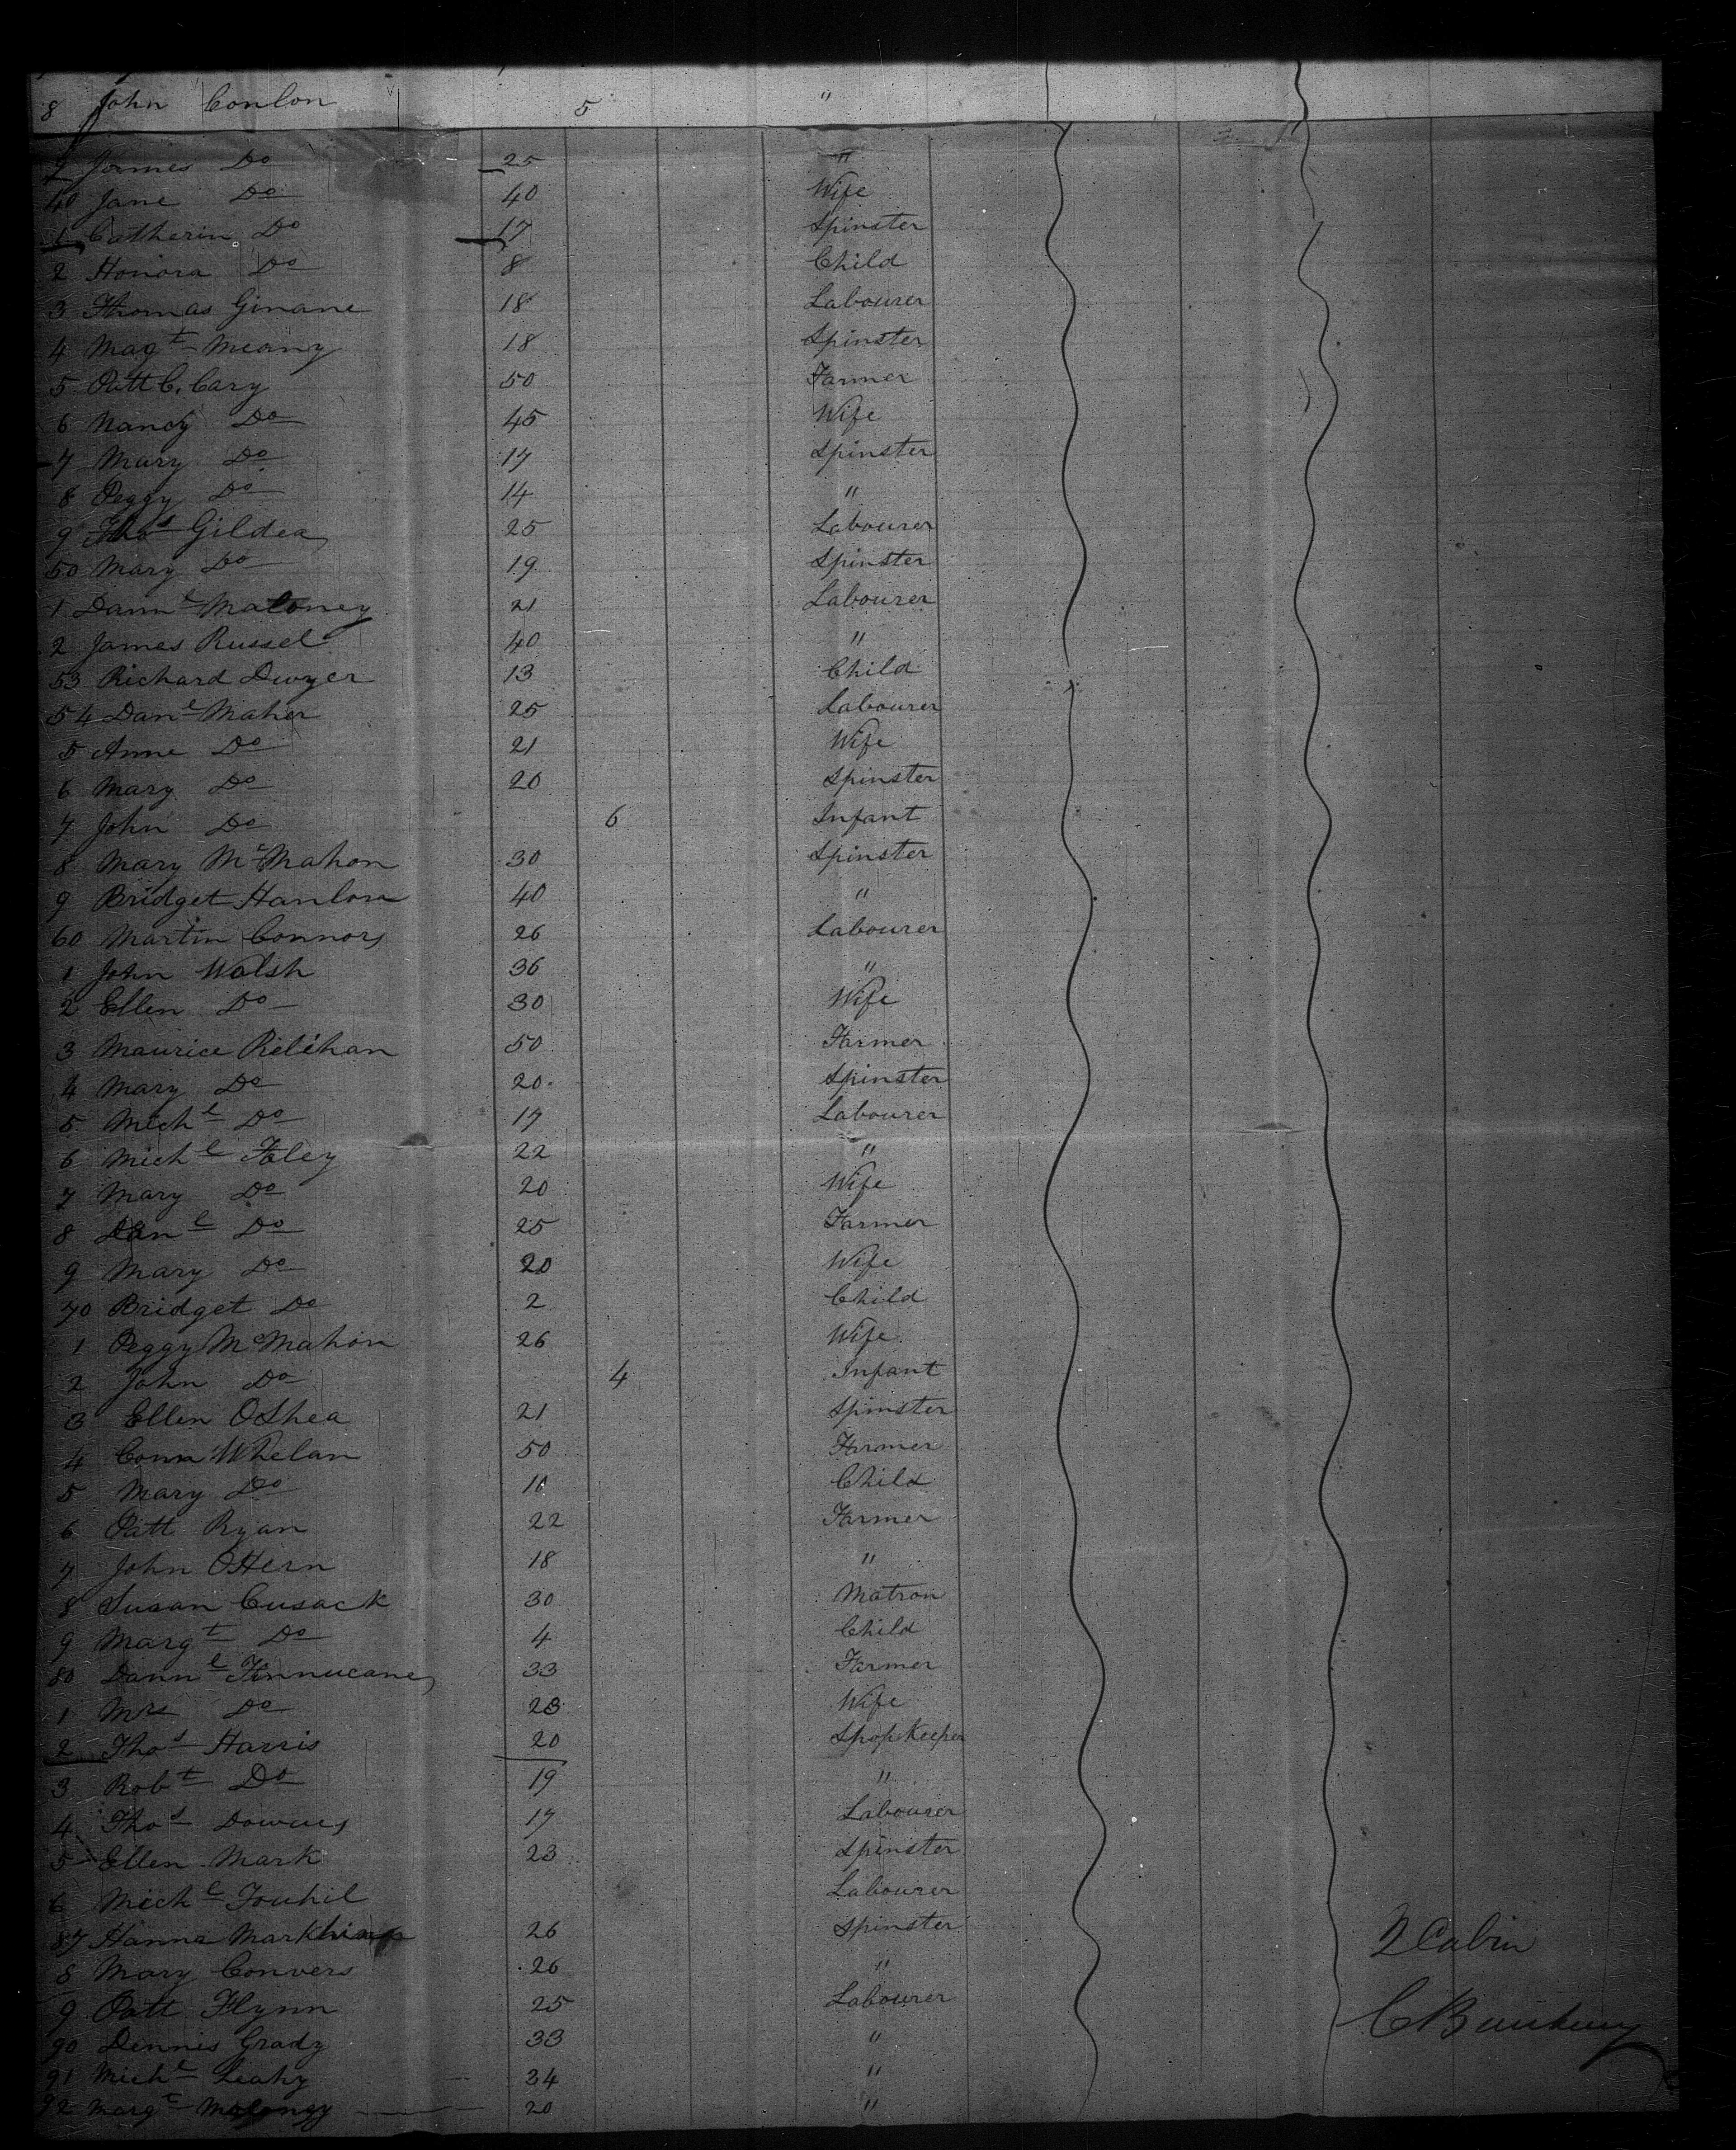 8 John Conlon 5 "
9 James Do 25 "
40 Jane Do 40 Wife
1 Catherin Do 17 Spinster
2 Honora Do 8 Child
3 Thomas Ginane 18 Labourer
4 Magt Meany 18 Spinster
5 Patt C. Cary 50 Farmer
6 Nancy Do 45 Wife
7 Mary Do 17 Spinster
8 Peggy Do 14 "
9 Thos Gildea 25 Labourer
50 Mary Do 19 Spinster
1 Dannl Maloney 21 Labourer
2 James Russel 40 "
53 Richard Dwyer 13 Child
54 Danl Maher 25 Labourer
5 Anne Do 21 Wife
6 Mary Do 20 Spinster
7 John Do 6 Infant
8 Mary McMahon 30 Spinster
9 Bridget Hanlon 40 "
60 Martin Connors 26 Labourer
1 John Walsh 36 "
2 Ellen Do 30 Wife
3 Maurice Relehan 50 Farmer
4 Mary Do 20 Spinster
5 Michl Do 17 Labourer
6 Michl Foley 22 "
7 Mary Do 20 Wife
8 Danl Do 25 Farmer
9 Mary Do 20 Wife
70 Bridget Do 2 Child
1 Peggy McMahon 26 Wife
2 John Do 4 Infant
3 Ellen OShea 21 Spinster
4 Conn Whelan 50 Farmer
5 Mary Do 10 Child
6 Patt Ryan 22 Farmer
7 John OHern 18 "
8 Susan Cusack 30 Matron
9 Margt Do 4 Child
80 Dannl Finnucane 33 Farmer
1 Mrs Do 28 Wife
2 Thos Harris 20 Shop Keeper
3 Robt Do 19 "
4 Thos Downes 17 Labourer
5 Ellen Mark 23 Spinster
6 Michl Touhil Labourer
87 Hanna 26 Spinster
8 Mary Convers 26 "
2 Cabin
9 Patt Flynn 25 Labourer
90 Dennis Grady 33 "
91 Michl Leahy 34 "
92 Margt 20 "